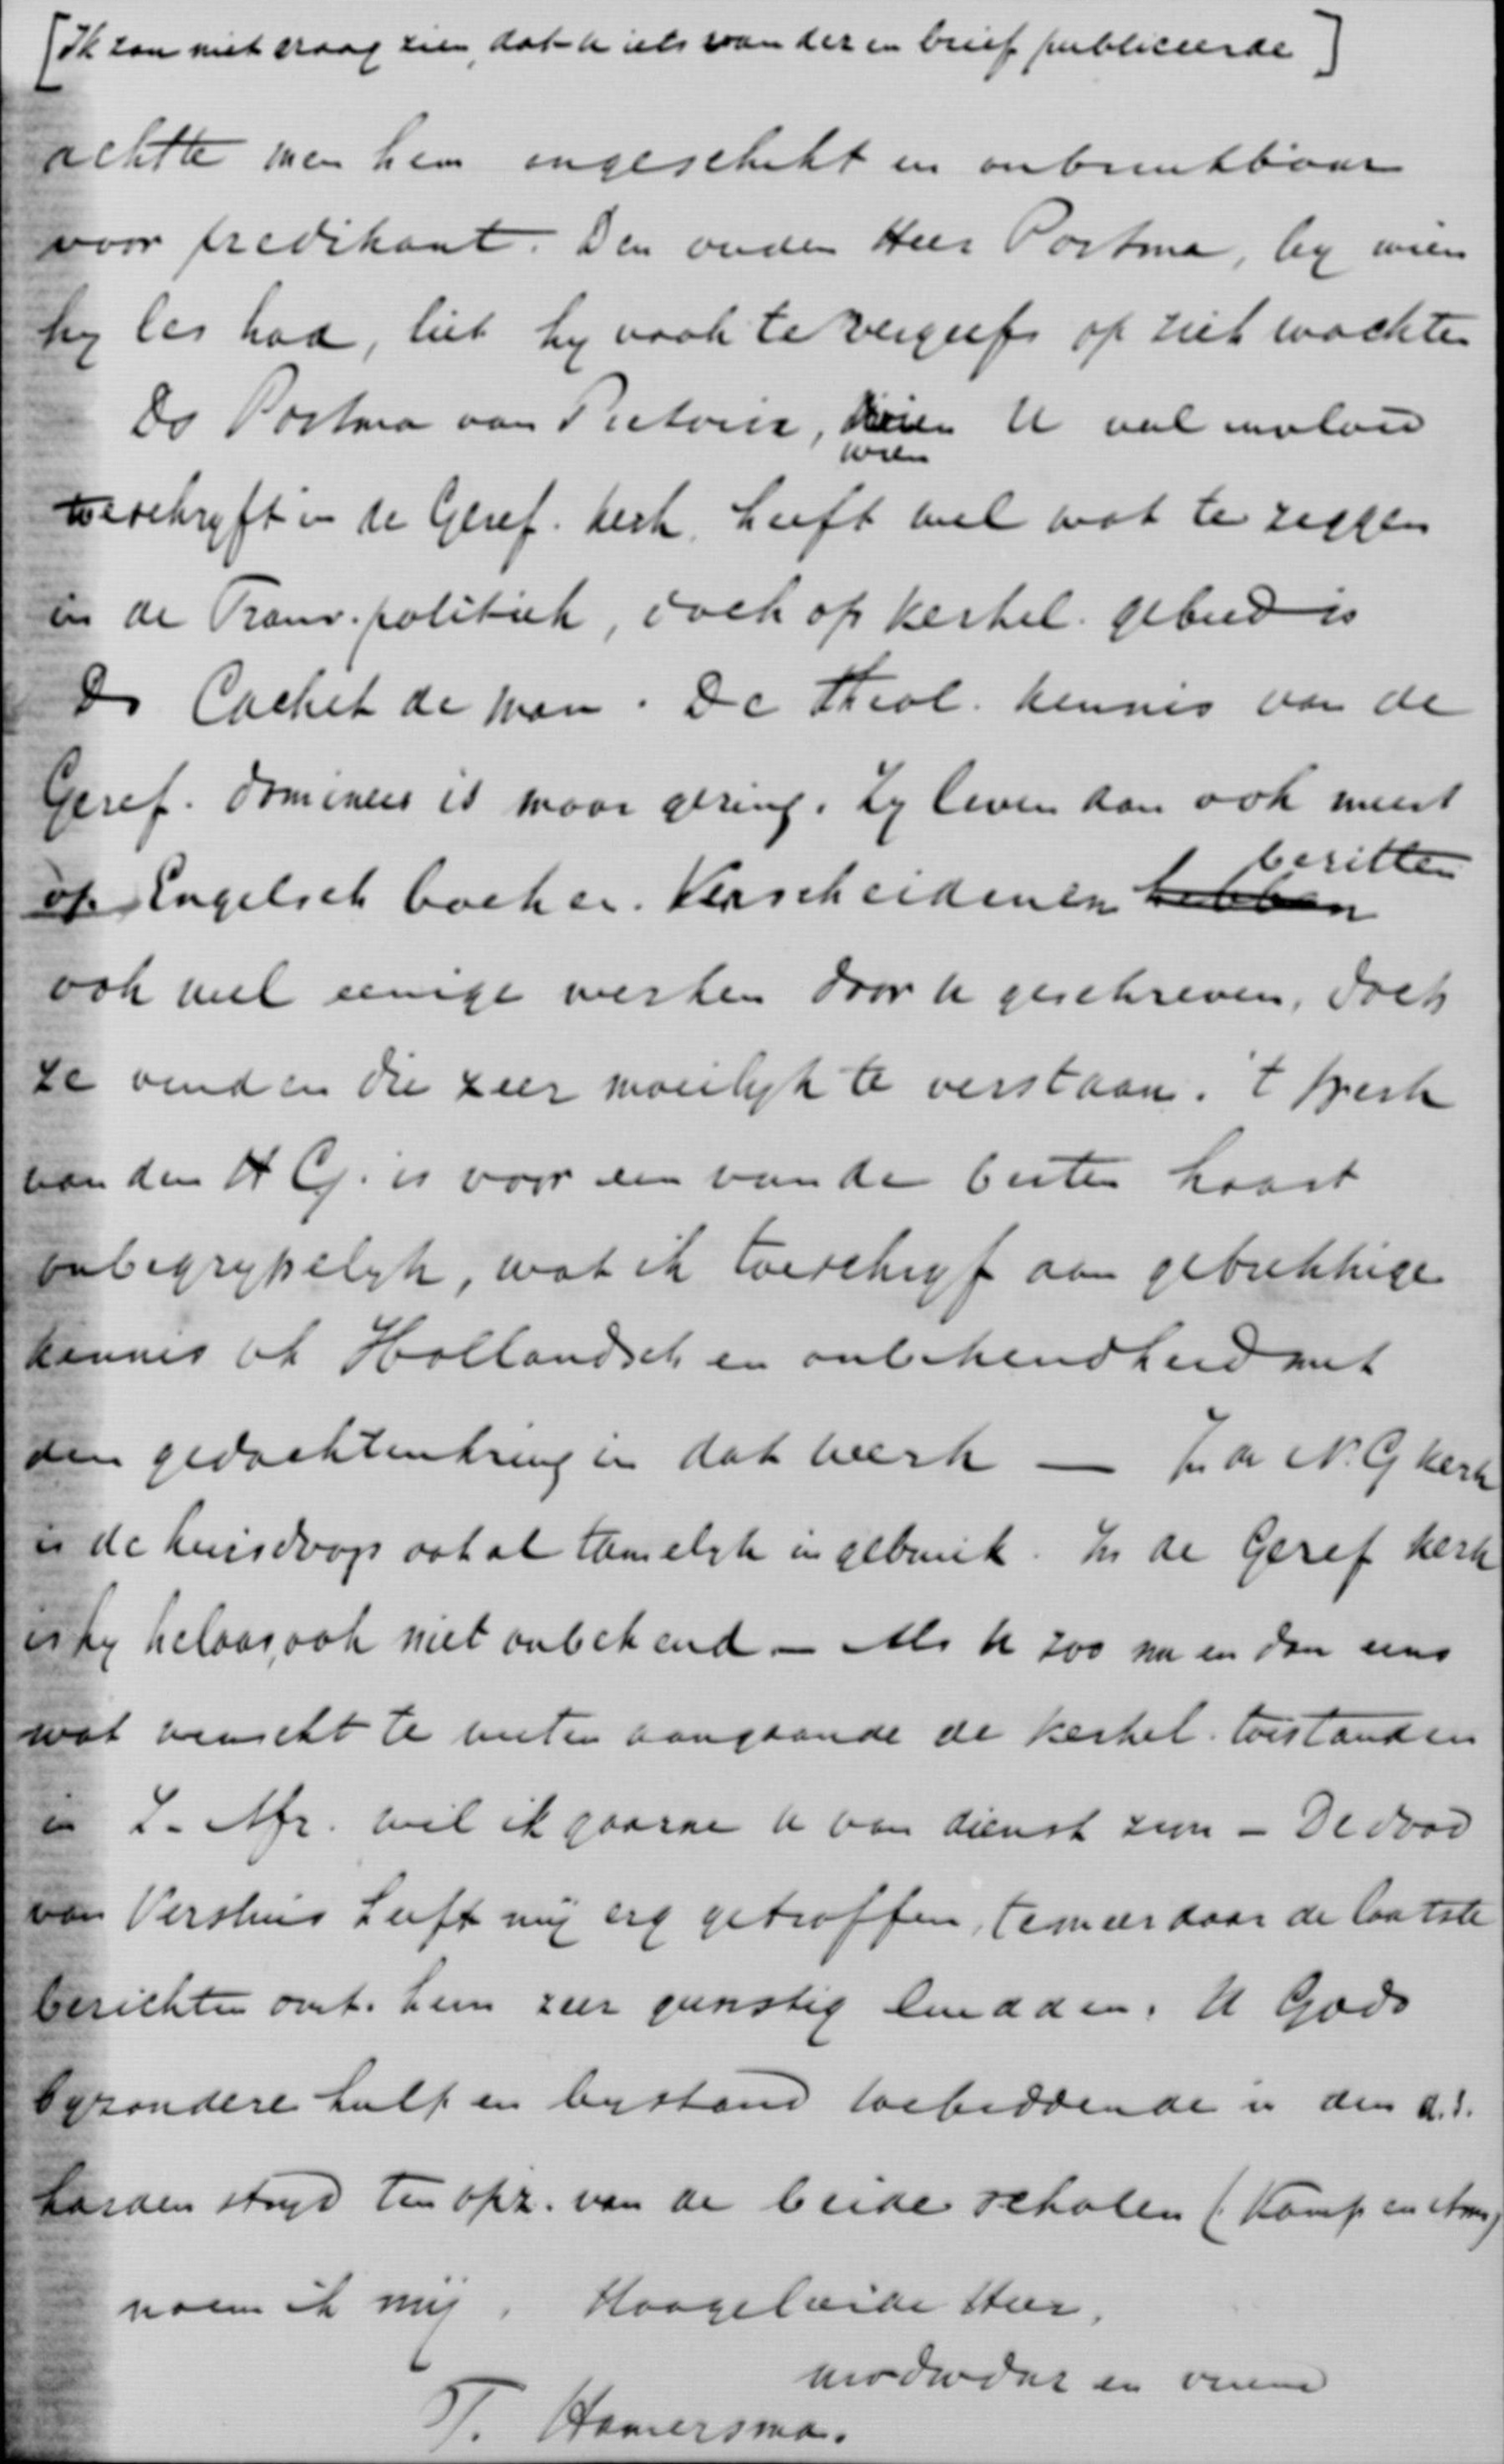 [Ik zou niet graag zien, dat u iets van dezen brief publiceerde]
achtte men hem ongeschikt en onbruikbaar
voor predikant. Den ouden Heer Postma, by wien
hy les had, liet hy vaak te vergeefs op zich wachten
Ds Postma van Pretoria, wien U veel invloed
toeschryft in de Geref. kerk, heeft wel wat te zeggen
in de Transv. politiek, doch op kerkel. gebied is
Ds Cachet de man. De Theol. kennis van de
Geref. dominees is maar gering. Zy leven dan ook meest
op Engelsch boeken. Verscheidenen hebben bezitten
ook wel eenige werken door U geschreven, doch
ze vinden die zeer moeilyk te verstaan. 't Werk
van den H G. is voor een van de besten haast
onbegrypelyk, wat ik toeschryf aan gebrekkige
kennis vh Hollandsch en onbekendheid met
den gedachtenkring in dat werk — In de N.G kerk
is de huisdoop ook al tamelyk in gebruik. In de Geref kerk
is hy helaas, ook niet onbekend – Als U zoo nu en dan eens
wat wenscht te weten aangaande de kerkel. toestanden
in Z-Afr. wil ik gaarne U van dienst zijn – De dood
van Vershuis heeft mij erg getroffen, temeer daar de laatste
berichten omt. hem zeer gunstig luidden. U Gods
byzondere hulp en bystand toebiddende in den
harden stryd ten opz. van de beide scholen (Kamp en Ams)
noem ik mij, Hooggeleerde Heer,
uw dw dnr en vriend
T. Hamersma.